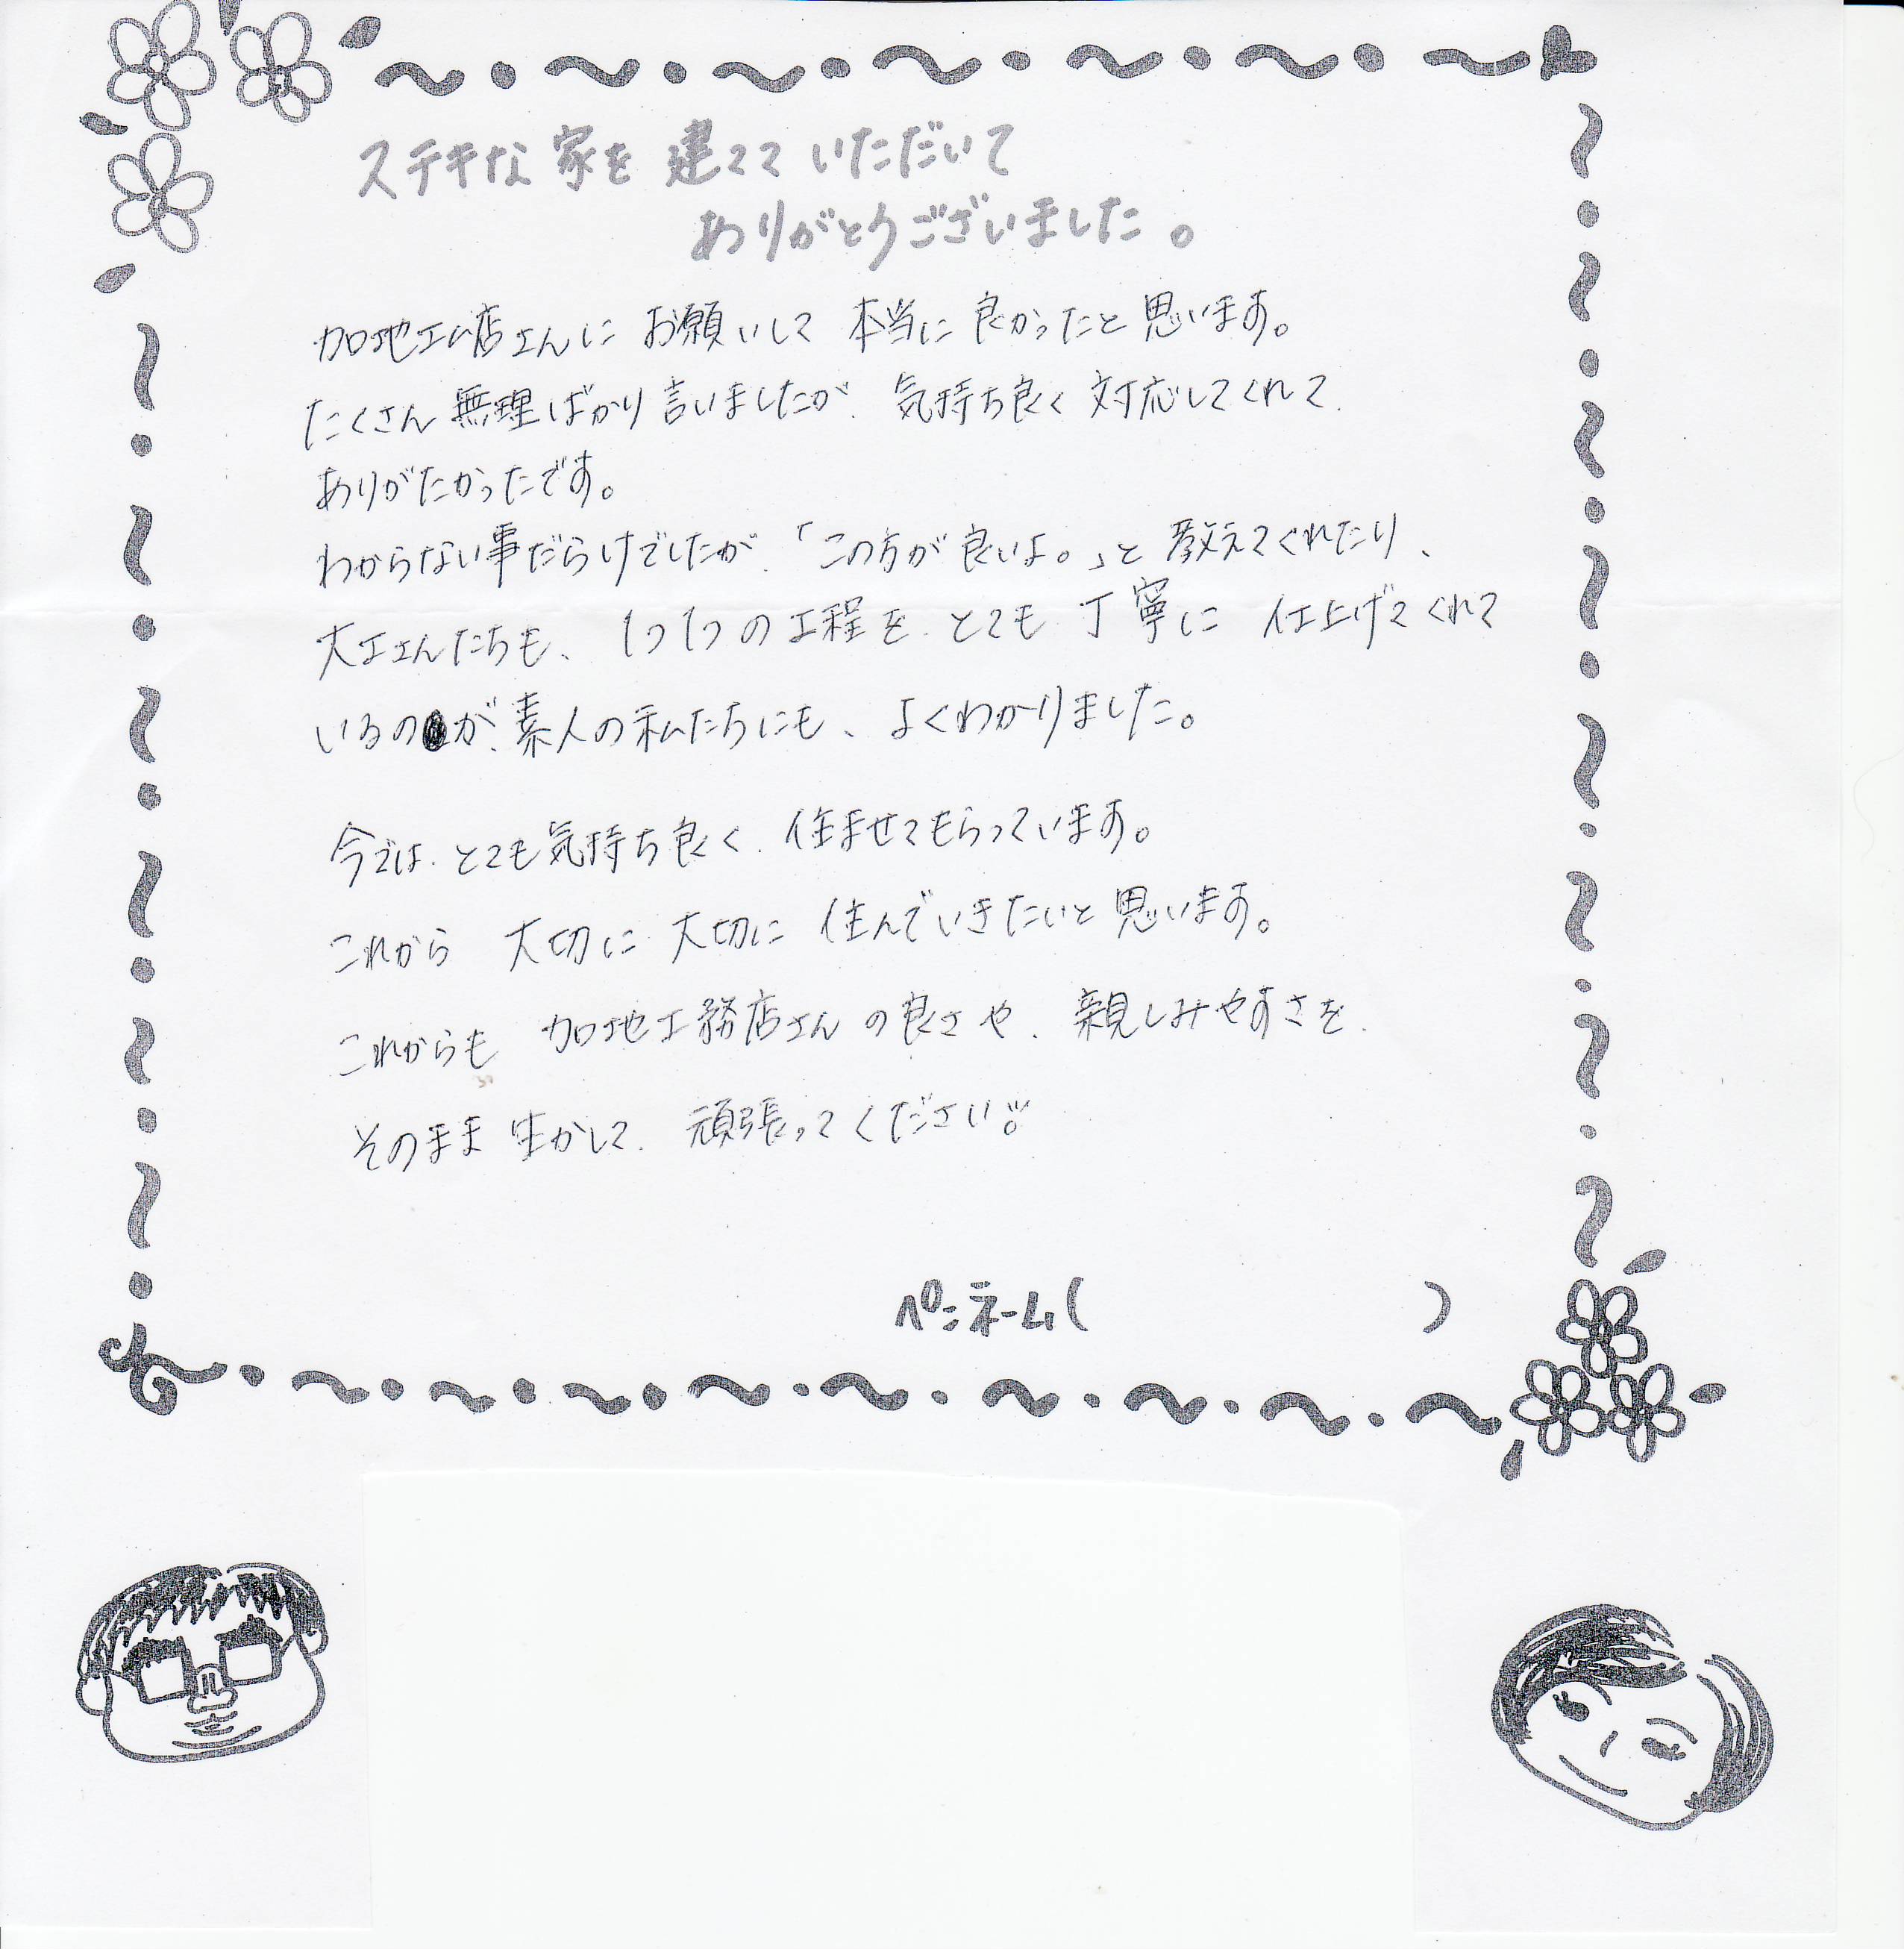 ステキな家を建てて いただいて
ありがとうございました。
加地工ム店さんに お願いして 本当に 良かったと思います。
たくさん無理ばかり言いましたが、気持ち良く 対応してくれて、
ありがたかったです。
わからない事だらけでしたが、「この方が良いよ。」と 教えてくれたり、
大工さんたちも、1つ1つの工程を、とても 丁寧に 仕上げてくれて
いるのが、素人の私たちにも、よくわかりました。
今では、とても気持ち良く、住ませてもらっています。
これから 大切に 大切に 住んでいきたいと思います。
これからも 加地工務店さんの良さや、親しみやすさを、
そのまま 生かして、頑張ってください!!
ペンネーム( )